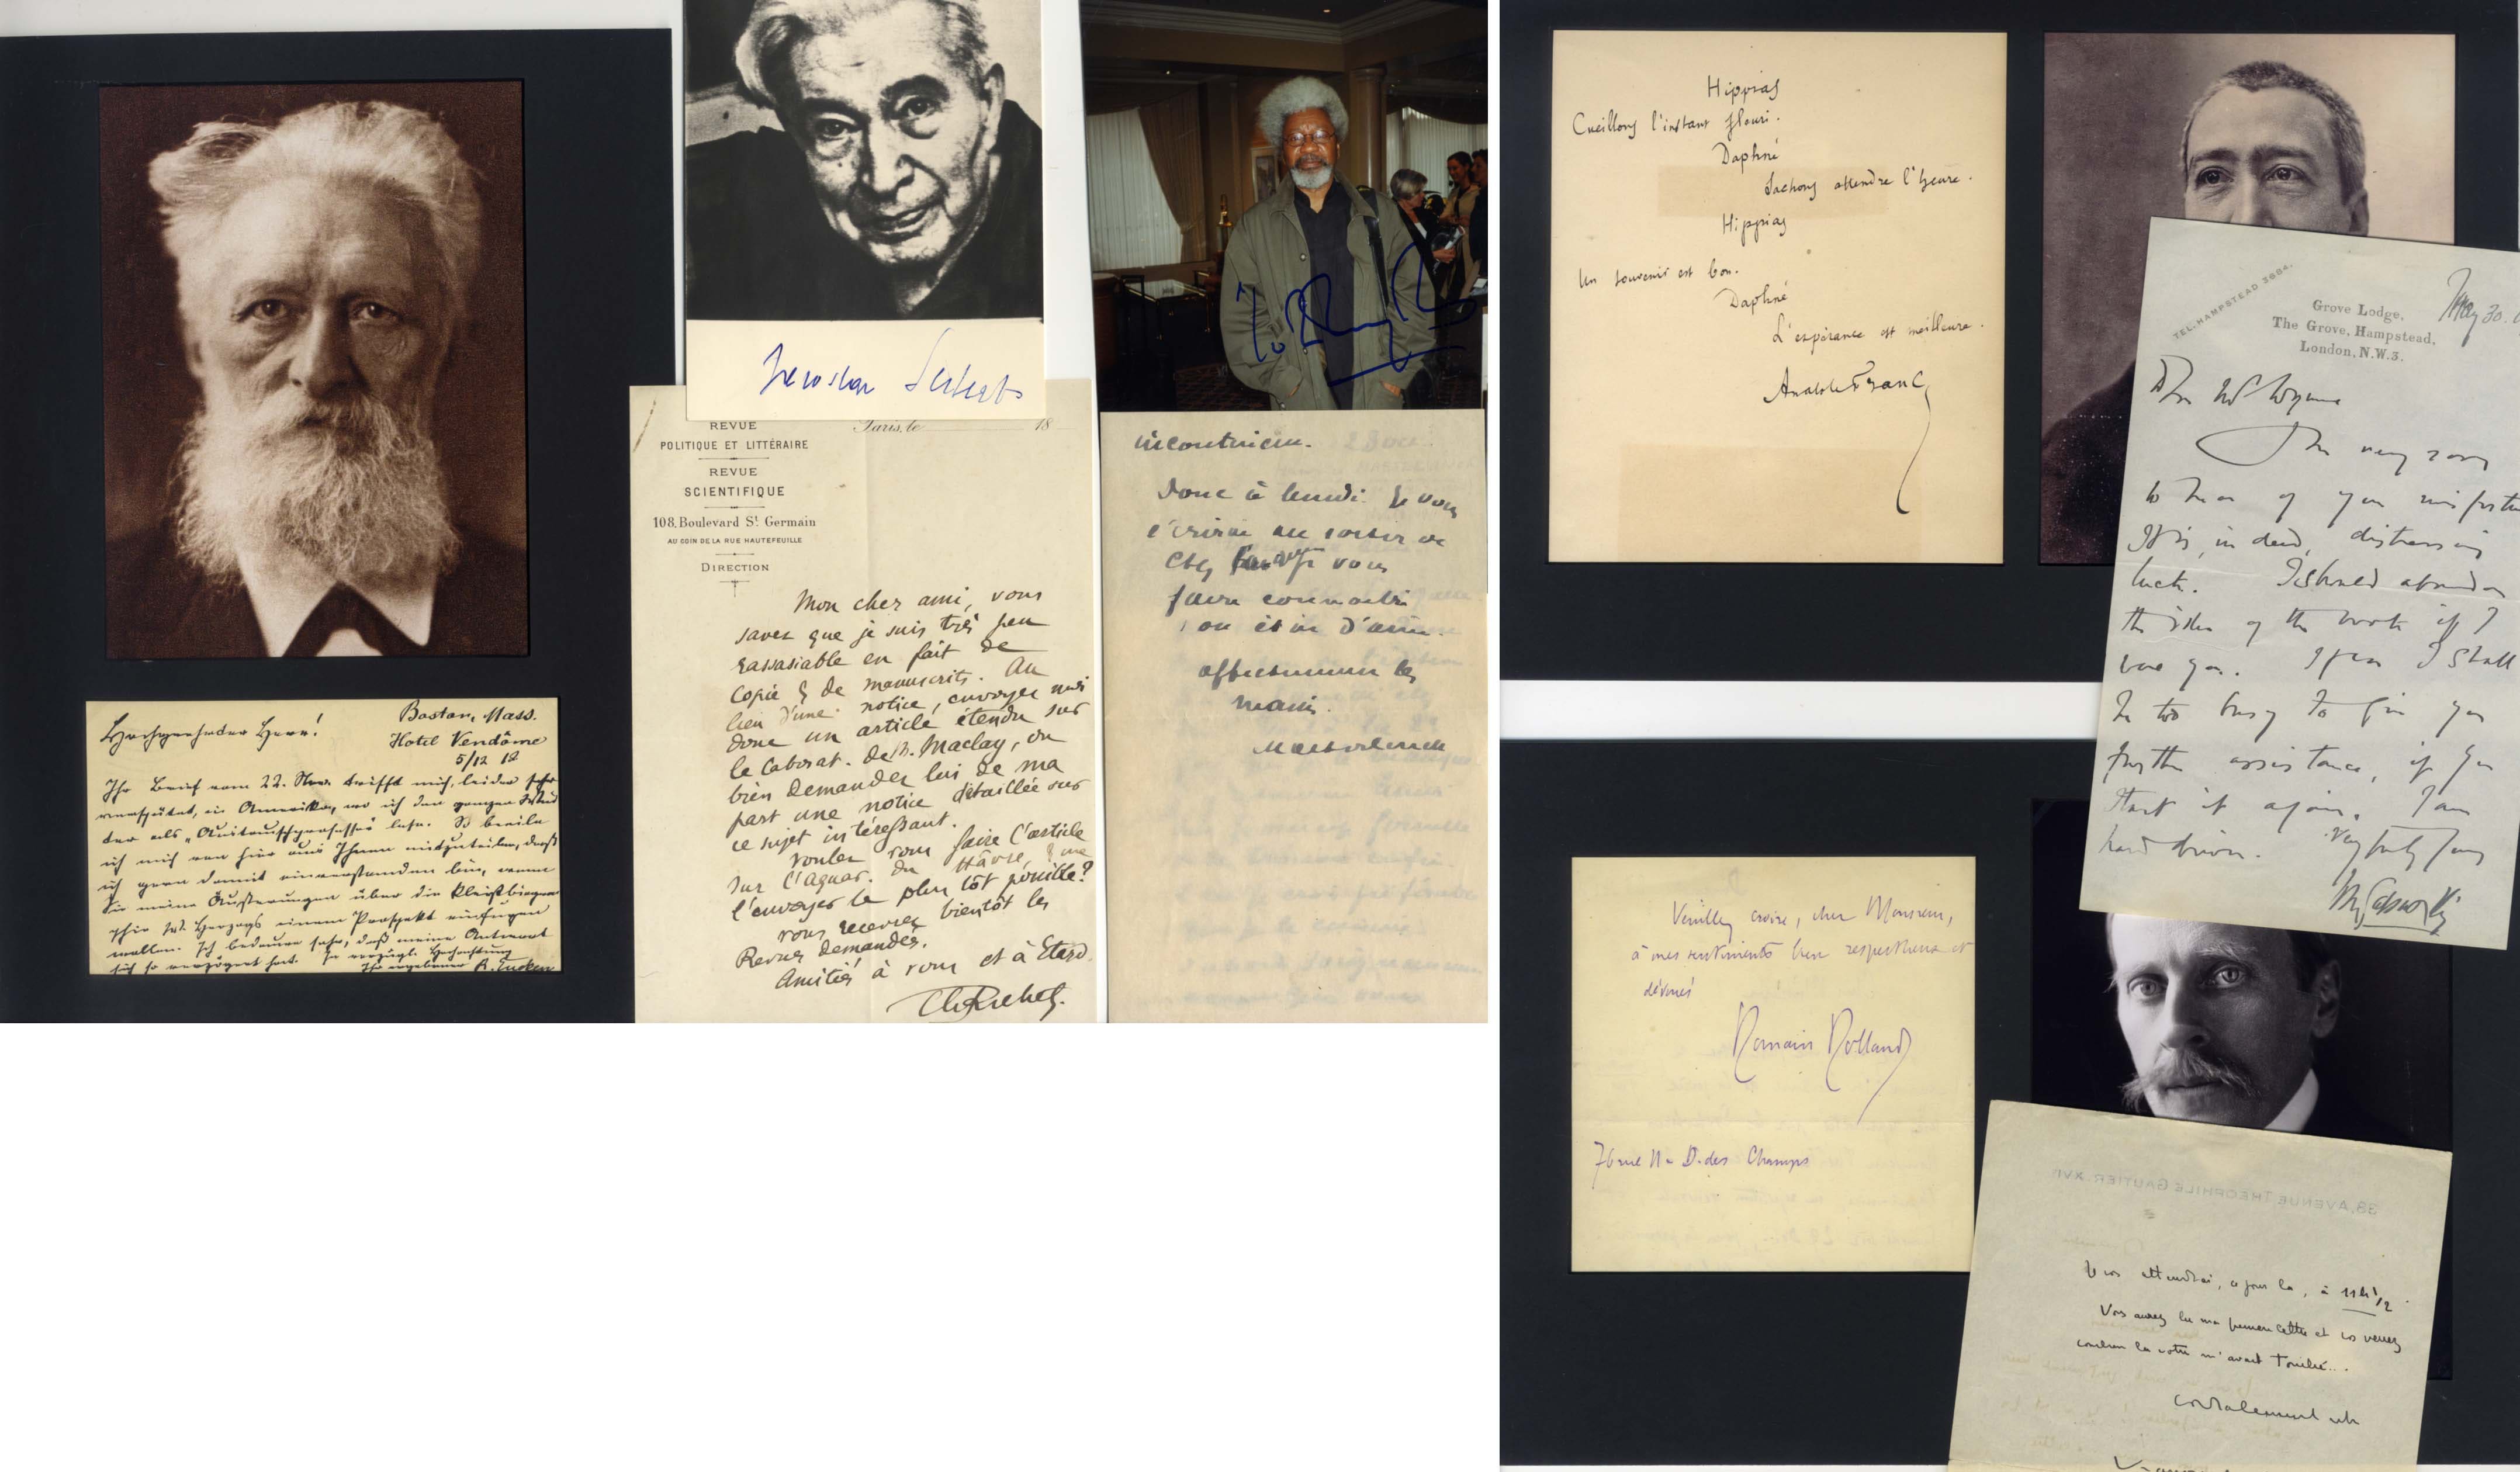 Hochgeehrter Herr!
Boston, Mass.
Hotel Vendôme
5/12 12
Ihr Brief vom 22. Nov. trifft mich, leider sehr
verspätet, in Amerika, wo ich den ganzen
der als „Austauschprofessor" lese. So beeile
ich mich von hier aus Ihnen mitzuteilen, daß
ich gern damit einverstanden bin, wenn
Sie meine Äußerungen über die Kleistbiogra-
phie W. Herzogs einem Prospekt einfügen
wollen. Ich bedaure sehr, daß meine Antwort
sich so verzögert hat. In vorzügl. Hochachtung
Ihr ergebener R. Eucken
Jaroslav Seifert
REVUE
POLITIQUE ET LITTÉRAIRE
REVUE
SCIENTIFIQUE
108, Boulevard St. Germain
AU COIN DE LA RUE HAUTEFEUILLE
DIRECTION
Paris, le 18
Mon cher ami, vous
savez que je suis très peu
rassasiable en fait de
copie & de manuscrits. Au
lieu d'une notice, envoyez moi
donc un article étendu sur
le laborat. de M. Maclay, ou
bien demandez lui de ma
part une notice détaillée sur
ce sujet intéressant.
Voulez vous faire l'article
sur l'aquar. du Hâvre, & me
l'envoyer le plus tôt possible?
Vous recevrez bientôt les
Revues demandées.
Amitiés à vous et à Etard.
Ch Richet.
Donc à lundi. Je vous
écrirai au sortir de
chez vous
faire connaître
son état d'âme.
affectueusement les
mains.
Maeterlinck
Hippias
Cueillons l'instant fleuri.
Daphné
Sachons attendre l'heure.
Hippias
Un souvenir est bon.
Daphné
L'espérance est meilleure.
Anatole France
TEL. HAMPSTEAD 3684.
Grove Lodge,
The Grove, Hampstead,
London, N.W.3.
May 30.
Dear Mr Wynne
I'm very sorry
to hear of your misfortune
It is, indeed, distressing
luck. I should abandon
the idea of the book if I
were you. I fear I shall
be too busy to give you
further assistance, if you
start it again. I am
hard driven. Very truly yours
J Galsworthy
Veuillez croire, cher Monsieur,
à mes sentiments bien respectueux et
dévoués
Romain Rolland
76 rue N. D. des Champs
38, AVENUE THÉOPHILE GAUTIER. XVI
Je vous attendrai, ce jour là, à 11h 1/2
Vous aurez lu ma première lettre et vous verrez
combien la vôtre m'avait touché...
cordialement votre